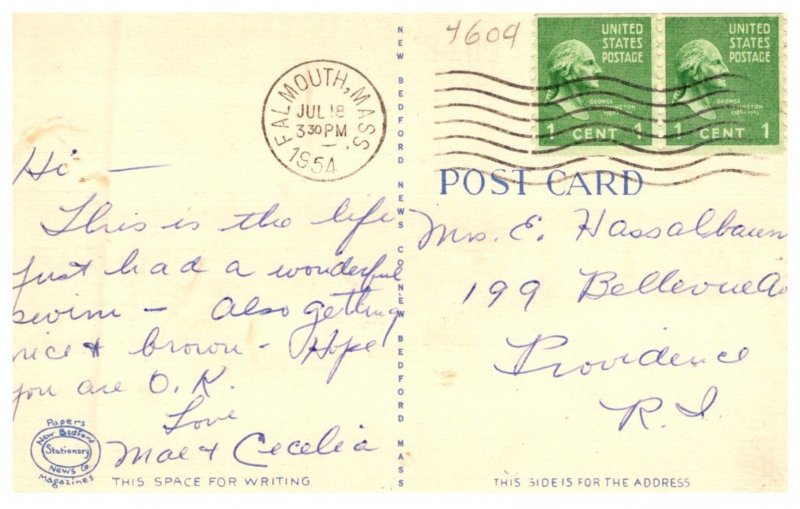 4609
UNITED STATES POSTAGE
GEORGE WASHINGTON
1 CENT 1
UNITED STATES POSTAGE
GEORGE WASHINGTON
1 CENT 1
FALMOUTH, MASS
JUL 18
3 30 PM
1954
POST CARD
Hi —
This is the life
Just had a wonderful
swim — Also getting
nice & brown - Hope
you are O.K.
Love
Mae & Cecelia
Mrs. E. Hassalbaum
199 Bellevue Av
Providence
R.I.
NEW BEDFORD NEWS CO NEW BEDFORD MASS
Papers
New Bedford
Stationary
News Co.
Magazines
THIS SPACE FOR WRITING
THIS SIDE IS FOR THE ADDRESS